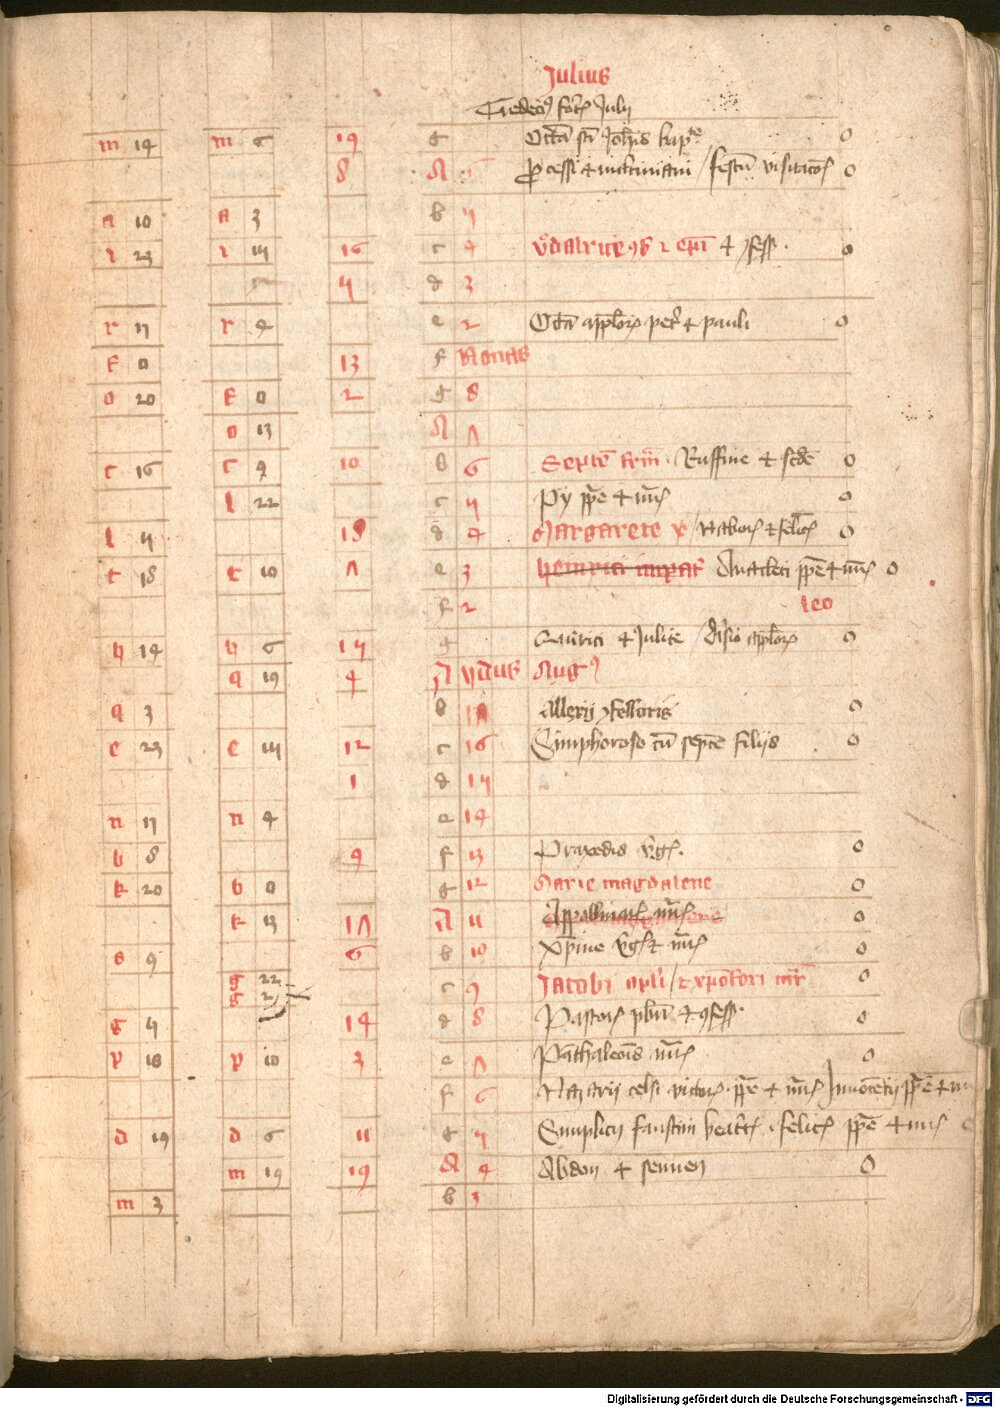 Julius
m 14 m 6 19 g Octa sti Johis bapte 0
8 A processi & martiniani / festu visitacois 0
a 10 a 3 b 5
i 23 i 14 16 c 4 vdalrici & epi & 9fess. 0
5 d 3
r 11 r 4 e 2 Octa aplorz petri & pauli 0
f 0 13 f Nonas
o 20 f 0 2 g 8
o 13 A 7
c 16 c 9 10 b 6 Septe frm. Ruffine & scde 0
l 22 c 5 Py ppe & mris 0
l 5 18 d 4 Margarete v / Naboris & felicis 0
t 18 t 10 7 e 3 heinrici impat Anacleti ppe & mris 0
f 2 leo
h 14 h 6 15 g Quirici & Julite / divisio aplorz 0
q 19 4 A ydus Aug9
q 3 b 17 Allexij 9fessoris 0
e 23 e 14 12 c 16 Simphoroso cu septe filijs 0
1 d 15
n 11 n 4 e 14
b 8 9 f 13 Praxedis vgis. 0
k 20 b 0 g 12 Marie magdalene 0
k 13 17 A 11 Appollinaris mris 0
s 9 6 b 10 Xpine vgis & mris 0
g 22
g 2 c 9 Jacobi apli / & xpofori mr 0
g 5 14 d 8 Pastoris pbri & 9fess. 0
p 18 p 10 3 e 7 Pathaleois mris 0
f 6 Nazarij celsi victoris ppe & mris Innocetij ppe & m
d 19 d 6 11 g 5 Simplicij faustini beatcis felicis ppe & mris 0
m 19 19 A 4 Abdon & sennen 0
m 3 b 3
Digitalisierung gefördert durch die Deutsche Forschungsgemeinschaft - DFG